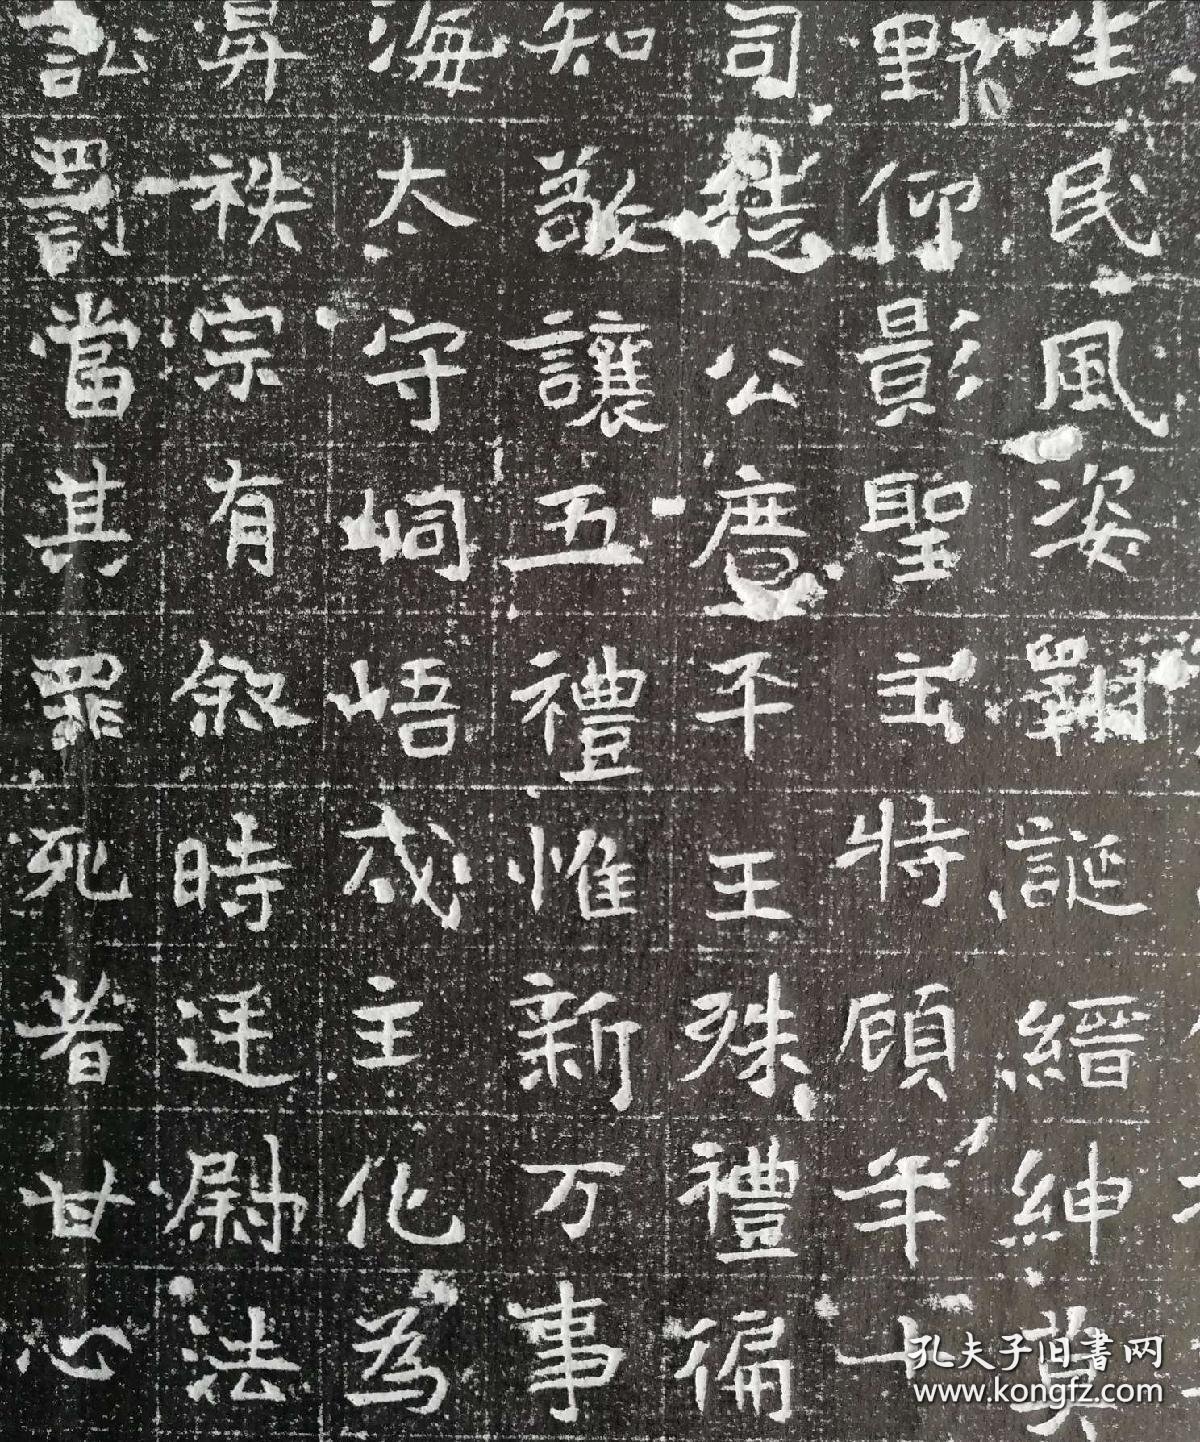 生民風姿羈誕縉紳莫
野仰影聖主特顧年十
司聽公府平王殊禮徧
知敬讓五禮惟新万事
海太守峒峿戍主化為
昇袟宗有敘時迁尉法
訟罰當其罪死者甘心
孔夫子旧書网
www.kongfz.com